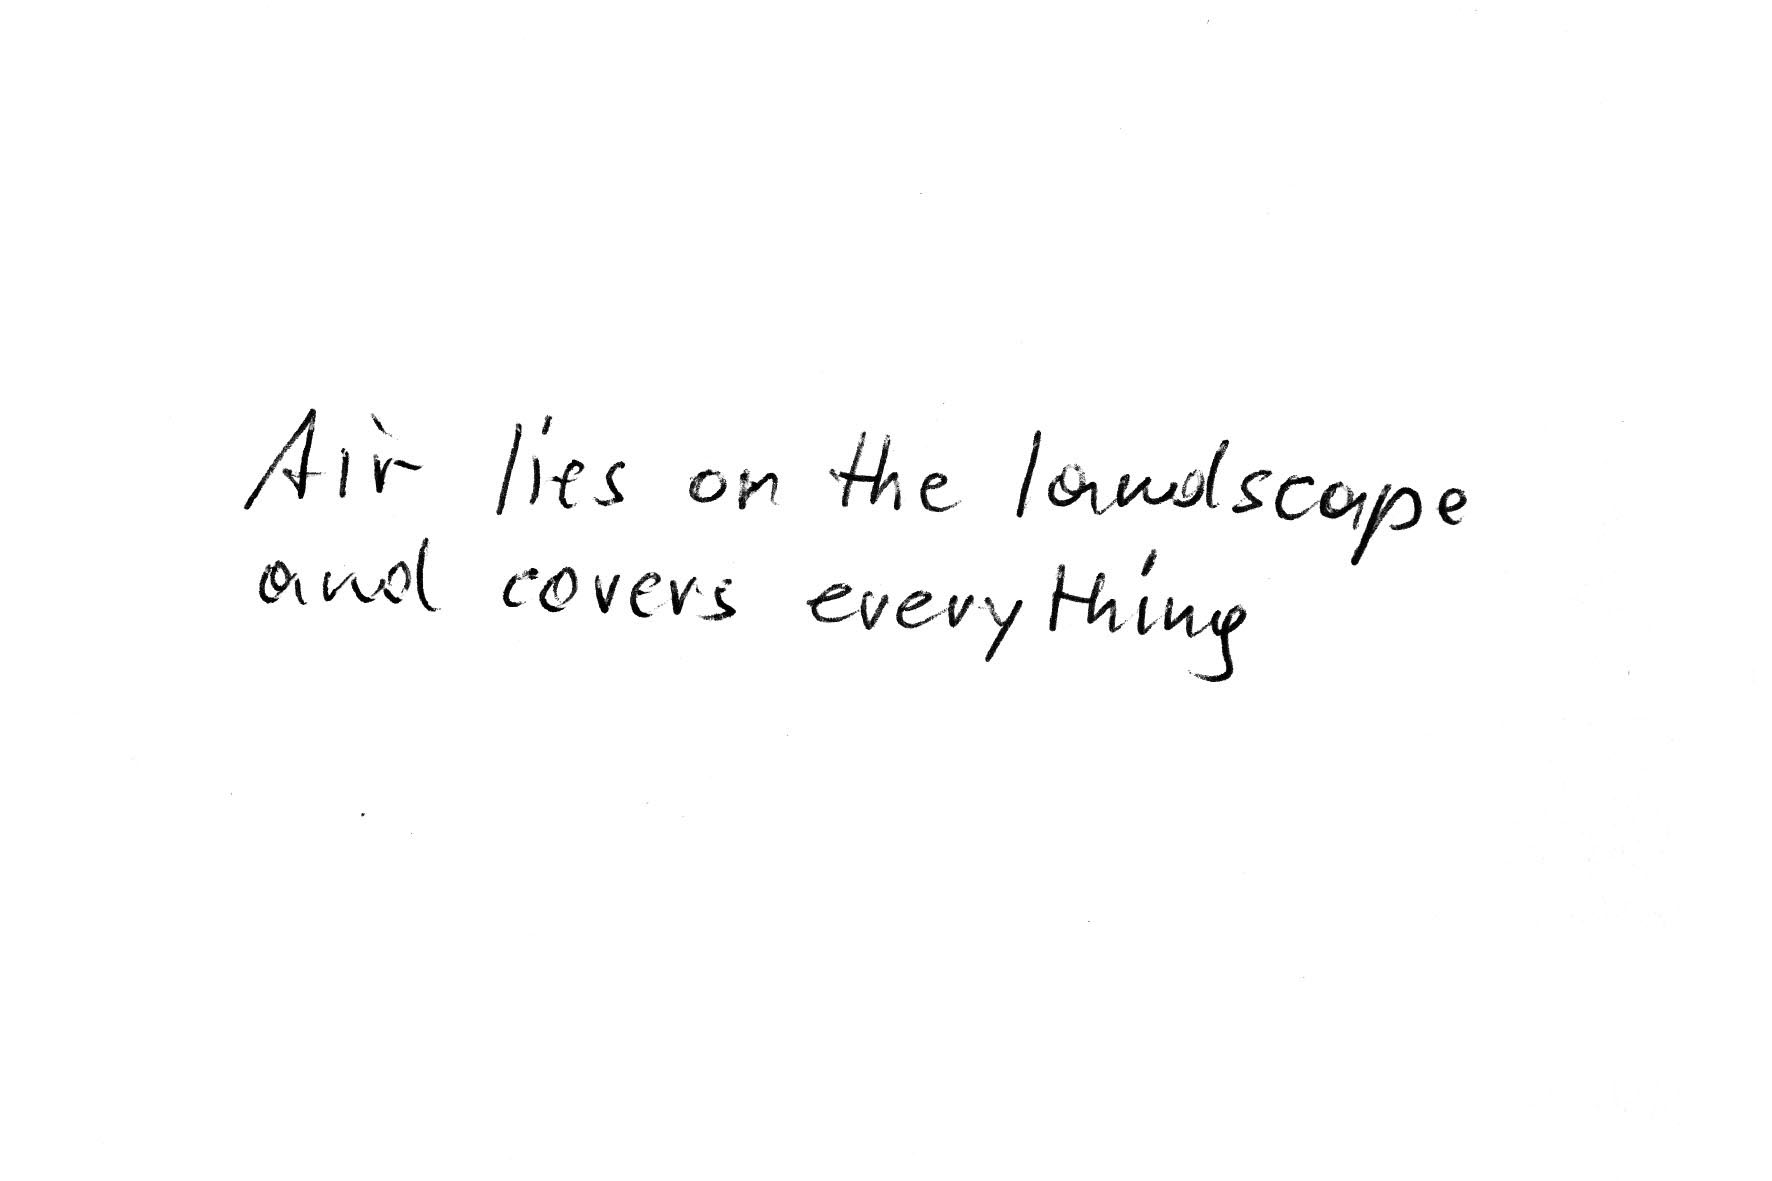 Air lies on the landscape
and covers everything